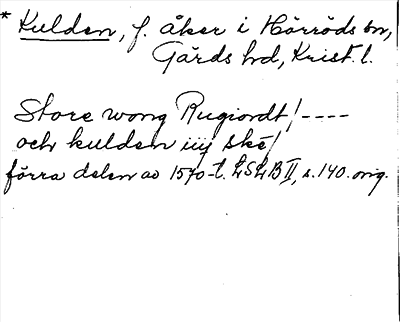 * Kulden, f. åker i Hörröds sn,
Gärds hd, Krist. l.
Store wong Rugiordt / ----
och kulden iiij ské /
förra delen av 1570-t. LSLB II, s. 140. orig.